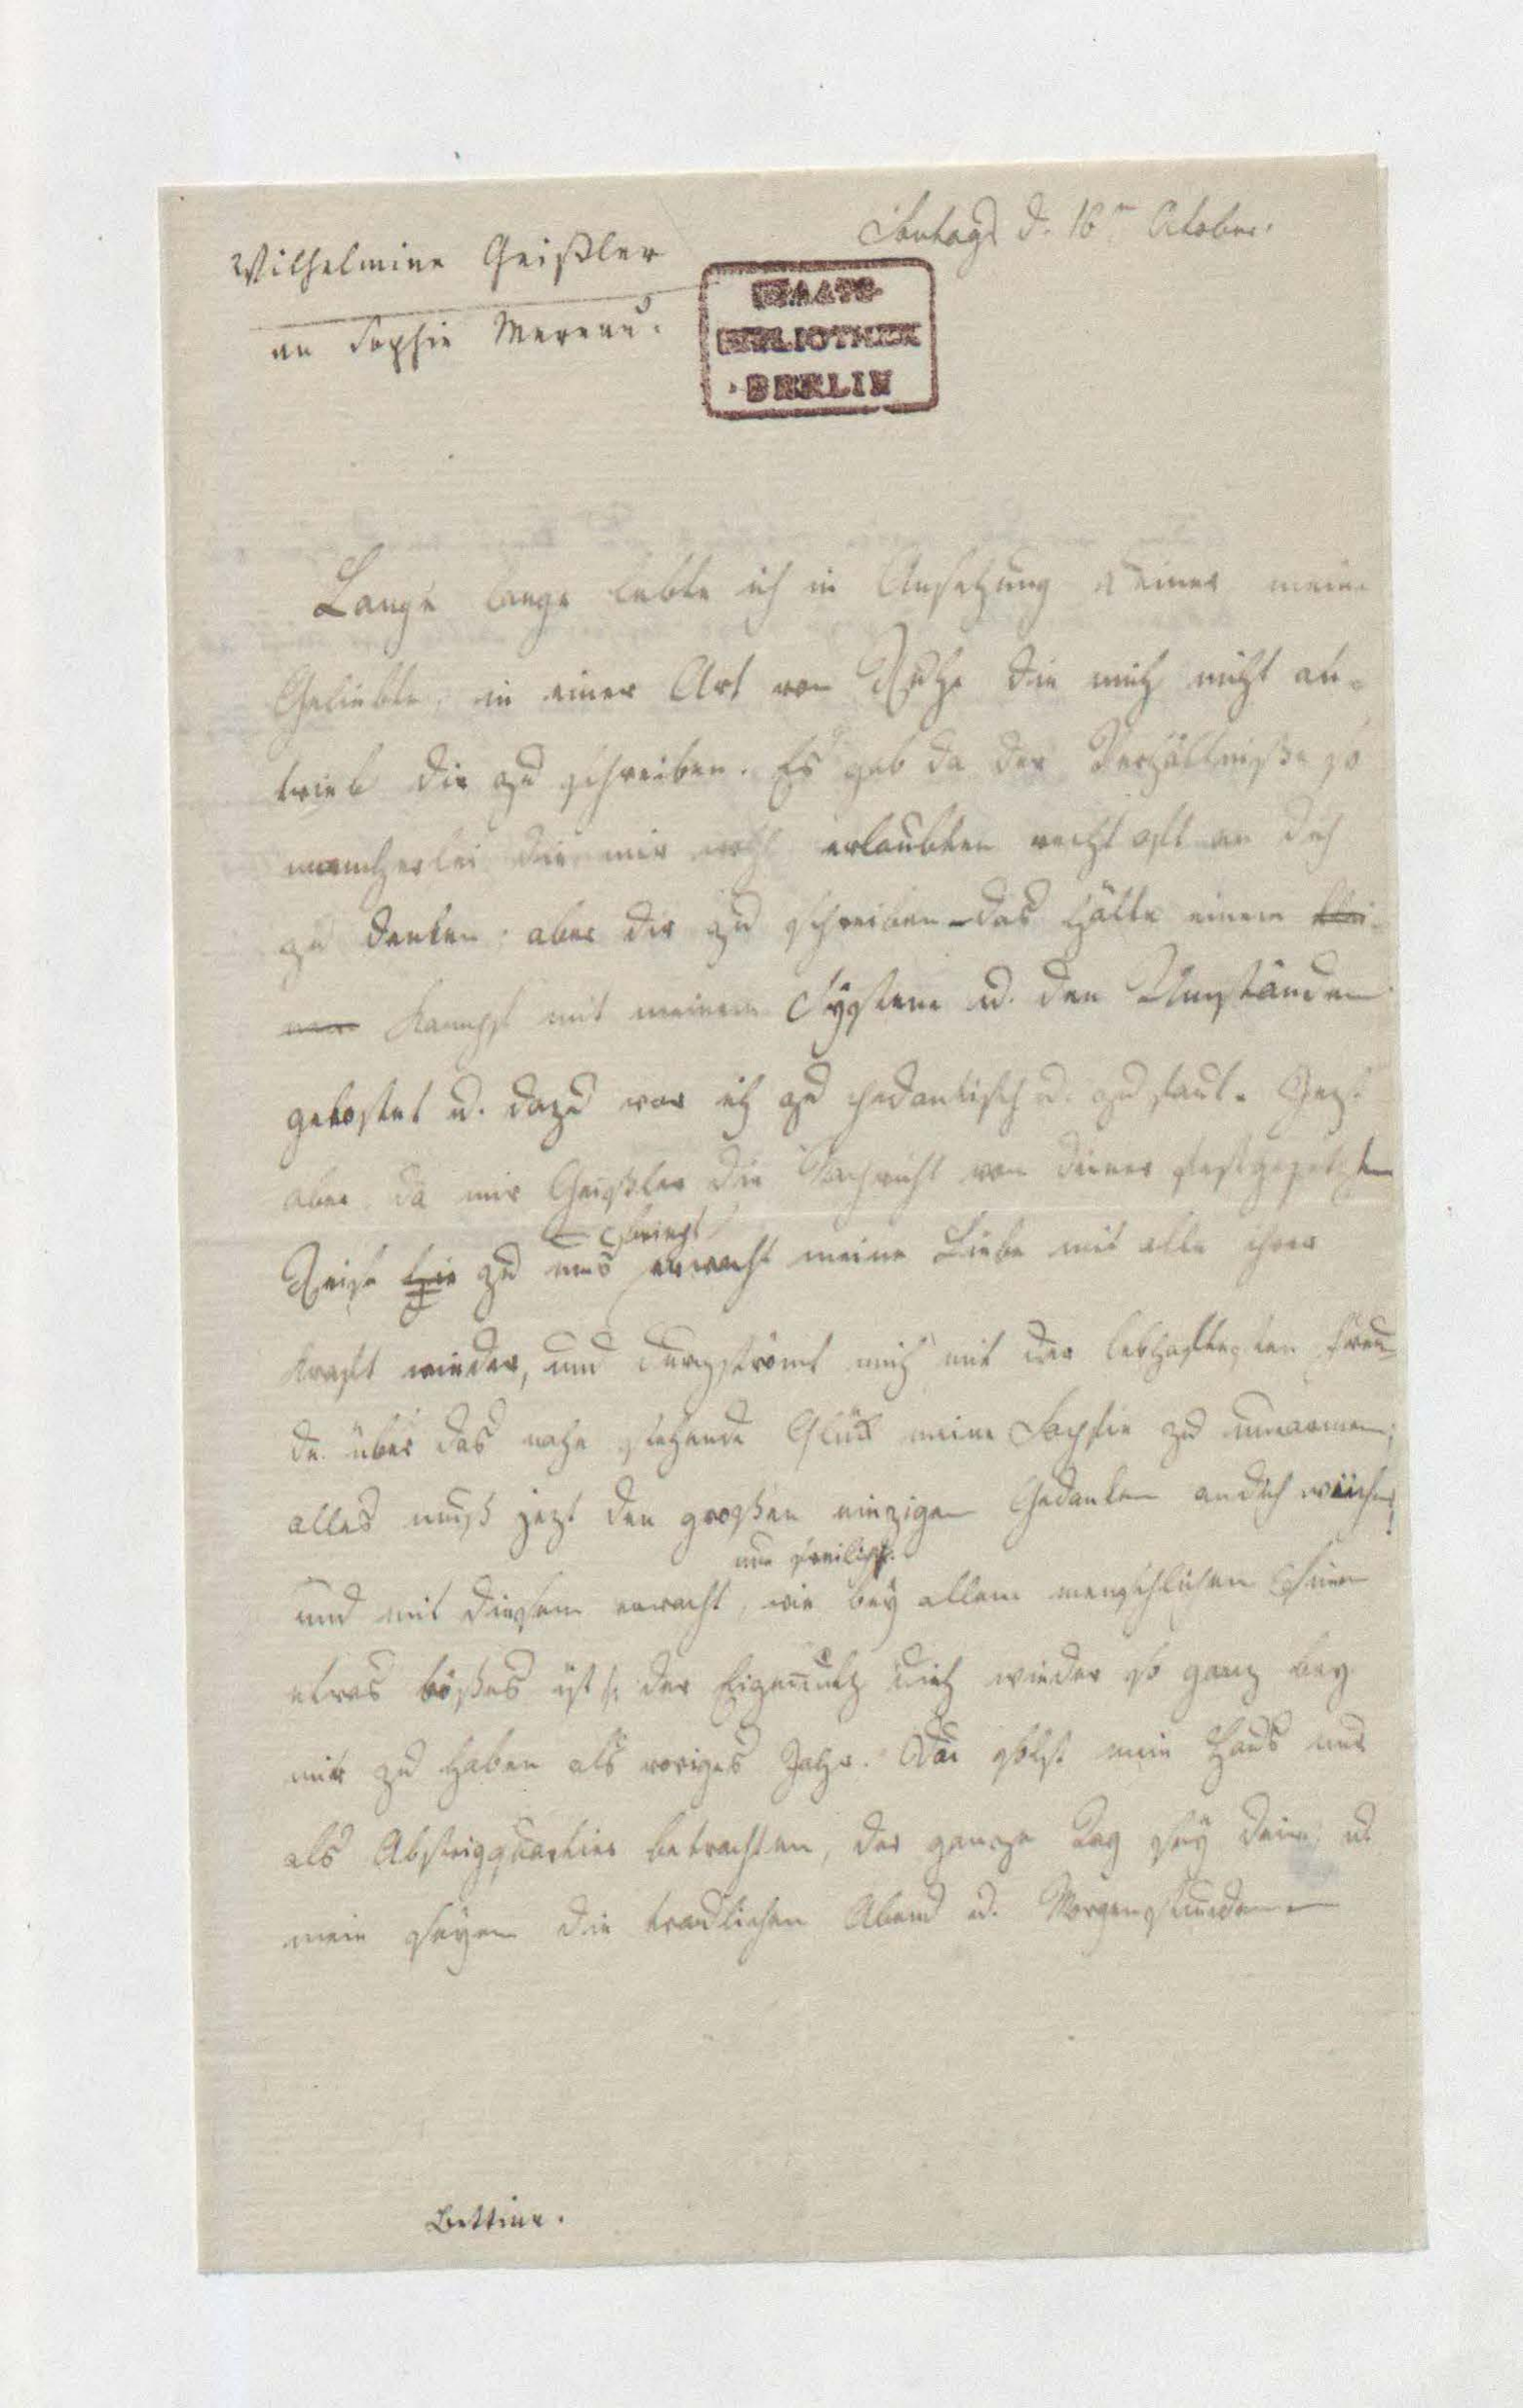 Sontags d. 16n Oktober.
Wilhelmine Geißler
an Sophie Mereau.
STAATS-
BIBLIOTHEK
BERLIN
Lange lange lebte ich in Ansehung deiner meine
Geliebte, in einer Art von Ruhe die mich nicht an-
trieb dir zu schreiben. Es gab da der Verhältniße so
mancherlei die mir wohl erlaubten recht oft an dich
zu denken, aber dir zu schreiben – das hätte einem klei-
nen Kampf mit meinem System u. den Umständen
gekostet u. dazu war ich zu pedantisch u. zu faul. Jezt
aber, da mir Geißler die Nachricht von deiner festgesetzten
bringt
Reise hie zu uns erwacht meine Liebe mit alle ihrer
Kraft wieder, und durchströmt mich mit der lebhaftesten Freu-
de über das nahe stehende Glük meine Sophie zu umarmen;
alles muß jezt den großen einzigen Gedanken an dich weichen,
nun freilich
und mit diesem erwacht, wie bey allem menschlichen
etwas böses ist, der Eigennutz dich wieder so ganz bey
mir zu haben als voriges Jahr. Du solst mein Haus nur
als Absteigquartier betrachten, der ganze Tag sey dein, u.
mein seyen die traulichen Abend u. Morgenstunden
Bettine.